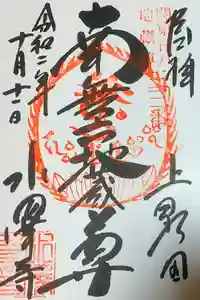 奉拝
上野国
南無地蔵尊
令和二年
十月十二日
水澤寺